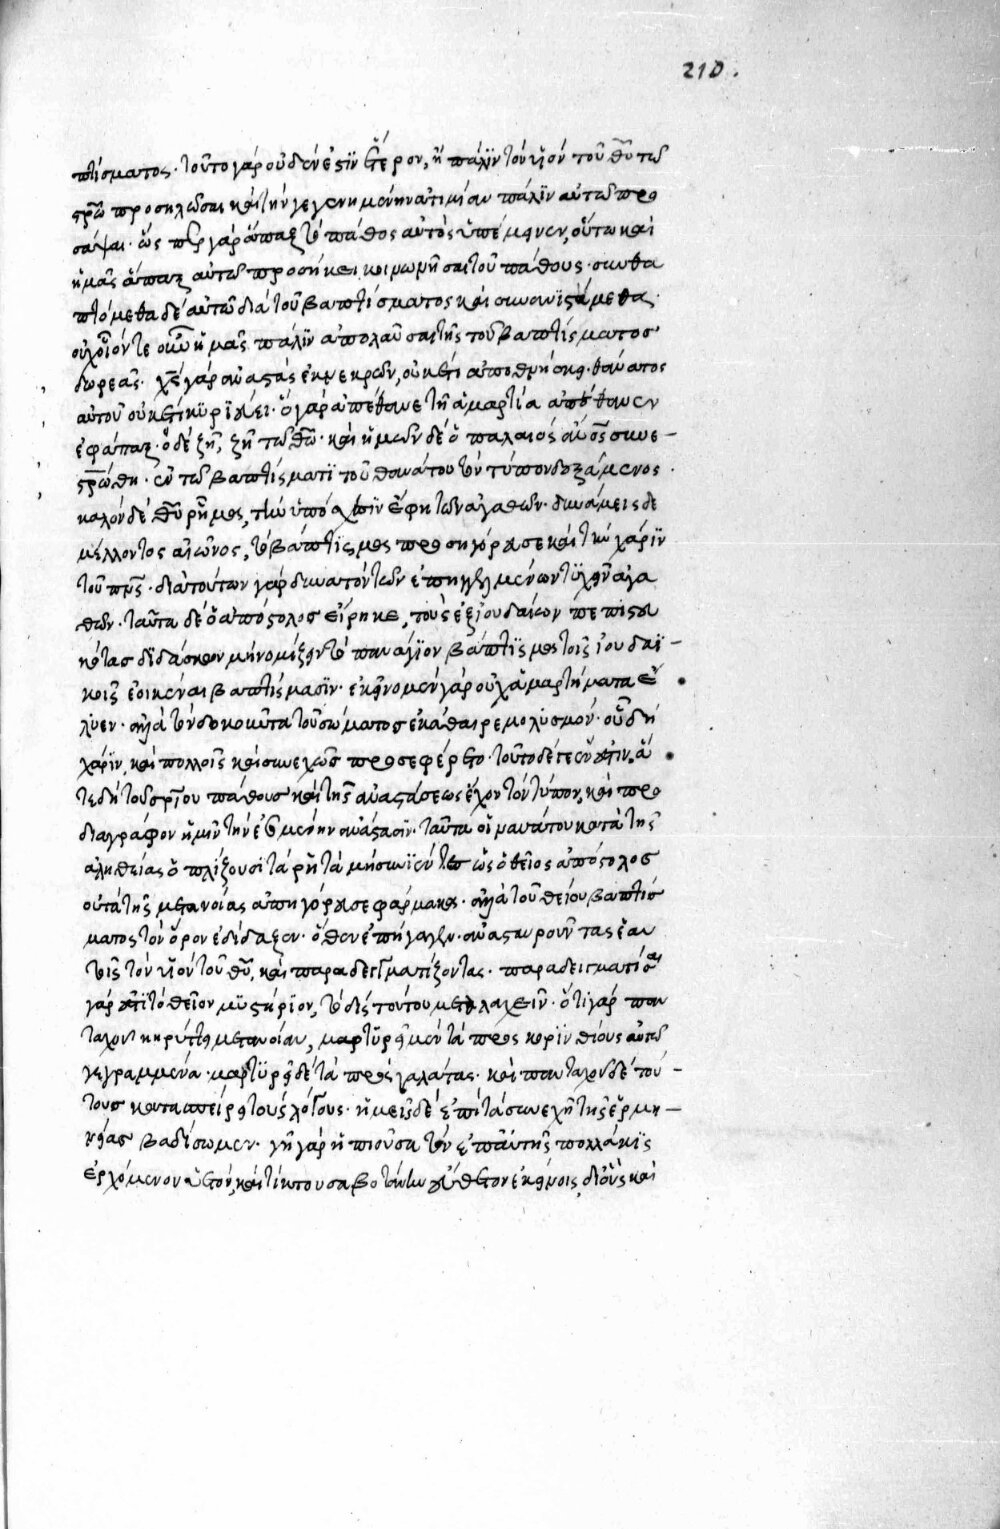 210.
πτίσματος· τοῦτο γὰρ οὐδέν ἐστιν ἕτερον, ἢ πάλιν τὸν υἱὸν τοῦ θῦ τῶ
στρῶ προσηλῶσαι καὶ τὴν γεγενημένην ἀτιμίαν πάλιν αὐτῶ προσ
άψαι· ὥσπερ γὰρ ἅπαξ τὸ πάθος αὐτὸς ὑπέμεινεν, οὕτω καὶ
ἡμᾶς ἅπαξ αὐτῶ προσήκει κοινωνῆσαι τοῦ πάθους· συνθα
πτόμεθα δὲ αὐτῶ διὰ τοῦ βαπτίσματος καὶ συνανιστάμεθα·
οὐχ οἷόν τε οὖν ἡμᾶς πάλιν ἀπολαῦσαι τῆς τοῦ βαπτίσματος
δωρεᾶς· χς γὰρ ἀναστὰς ἐκ νεκρῶν, οὐκέτι ἀποθνήσκει· θάνατος
αὐτοῦ οὐκέτι κυριεύει· ὃ γὰρ ἀπέθανε τῆ ἁμαρτία ἀπέθανεν
ἐφάπαξ· ὃ δὲ ζῆ, ζῆ τῶ θῶ· καὶ ἡμῶν δὲ ὁ παλαιὸς ἀνος συνε-
στρώθη· ἐν τῶ βαπτίσματι τοῦ θανάτου τὸν τύπον δεξάμενος·
καλὸν δὲ θῦ ῥῆμα, τὴν ὑπόσχεσιν ἔφη τῶν ἀγαθῶν· δυνάμεις δὲ
μέλλοντος αἰῶνος, τὸ βάπτισμα προσηγόρευσε καὶ τὴν χάριν
τοῦ πνς· διὰ τούτων γὰρ δυνατὸν τῶν ἐπηγγελμένων τυχεῖν ἀγα
θῶν· ταῦτα δὲ ὁ ἀπόστολος εἴρηκε, τοὺς ἐξ ἰουδαίων πεπιστευ
κότας διδάσκων μὴ νομίζειν τὸ πανάγιον βάπτισμα τοῖς ἰουδαϊ-
κοῖς ἐοικέναι βαπτίσμασιν· ἐκεῖνο μὲν γὰρ οὐχ ἁμαρτήματα ἔ
λυεν· ἀλλὰ τὸν δοκοῦντα τοῦ σώματος ἐκάθαιρε μολυσμόν· οὗ δὴ
χάριν, καὶ πολλοῖς καὶ συνεχῶς προσεφέρετο· τοῦτο δὲ τὸ ἕν ἐστιν, ἅ
τε δὴ τοῦ σρίου πάθους καὶ τῆς ἀναστάσεως ἔχον τὸν τύπον, καὶ προ
διαγράφον ἡμῖν τὴν ἐσομένην ἀνάστασιν· ταῦτα οἱ ναυάτου κατὰ τῆς
ἀληθείας ὁπλίζουσι τὰ ῥητὰ μὴ συνιέντες ὡς ὁ θεῖος ἀπόστολος
οὐ τὰ τῆς μετανοίας ἀπηγόρευσε φάρμακα· ἀλλὰ τοῦ θείου βαπτίσ
ματος τὸν ὅρον ἐδίδαξεν· ὅθεν ἐπήγαγεν· ἀνασταυροῦντας ἑαυ
τοῖς τὸν υἱὸν τοῦ θῦ, καὶ παραδειγματίζοντας· παραδειγματίσαι
γάρ ἐστι τὸ θεῖον μυστήριον, τὸ δὶς τούτου μεταλαχεῖν· ὅτι γὰρ παν
ταχοῦ κηρύττει μετάνοιαν, μαρτυρεῖ μὲν τὰ πρὸς κορινθίους αὐτῶ
γεγραμμένα· μαρτυρεῖ δὲ τὰ πρὸς γαλάτας· καὶ πανταχοῦ δὲ τού-
τους κατασπείρει τοὺς λόγους· ἡμεῖς δὲ ἐπὶ τὰ συνεχῆ τῆς ἑρμη-
νείας βαδίσωμεν· γῆ γὰρ ἡ πιοῦσα τὸν ἐπ' αὐτῆς πολλάκις
ἐρχόμενον ὑετόν, καὶ τίκτουσα βοτάνην εὔθετον ἐκείνοις, δι' οὓς καὶ